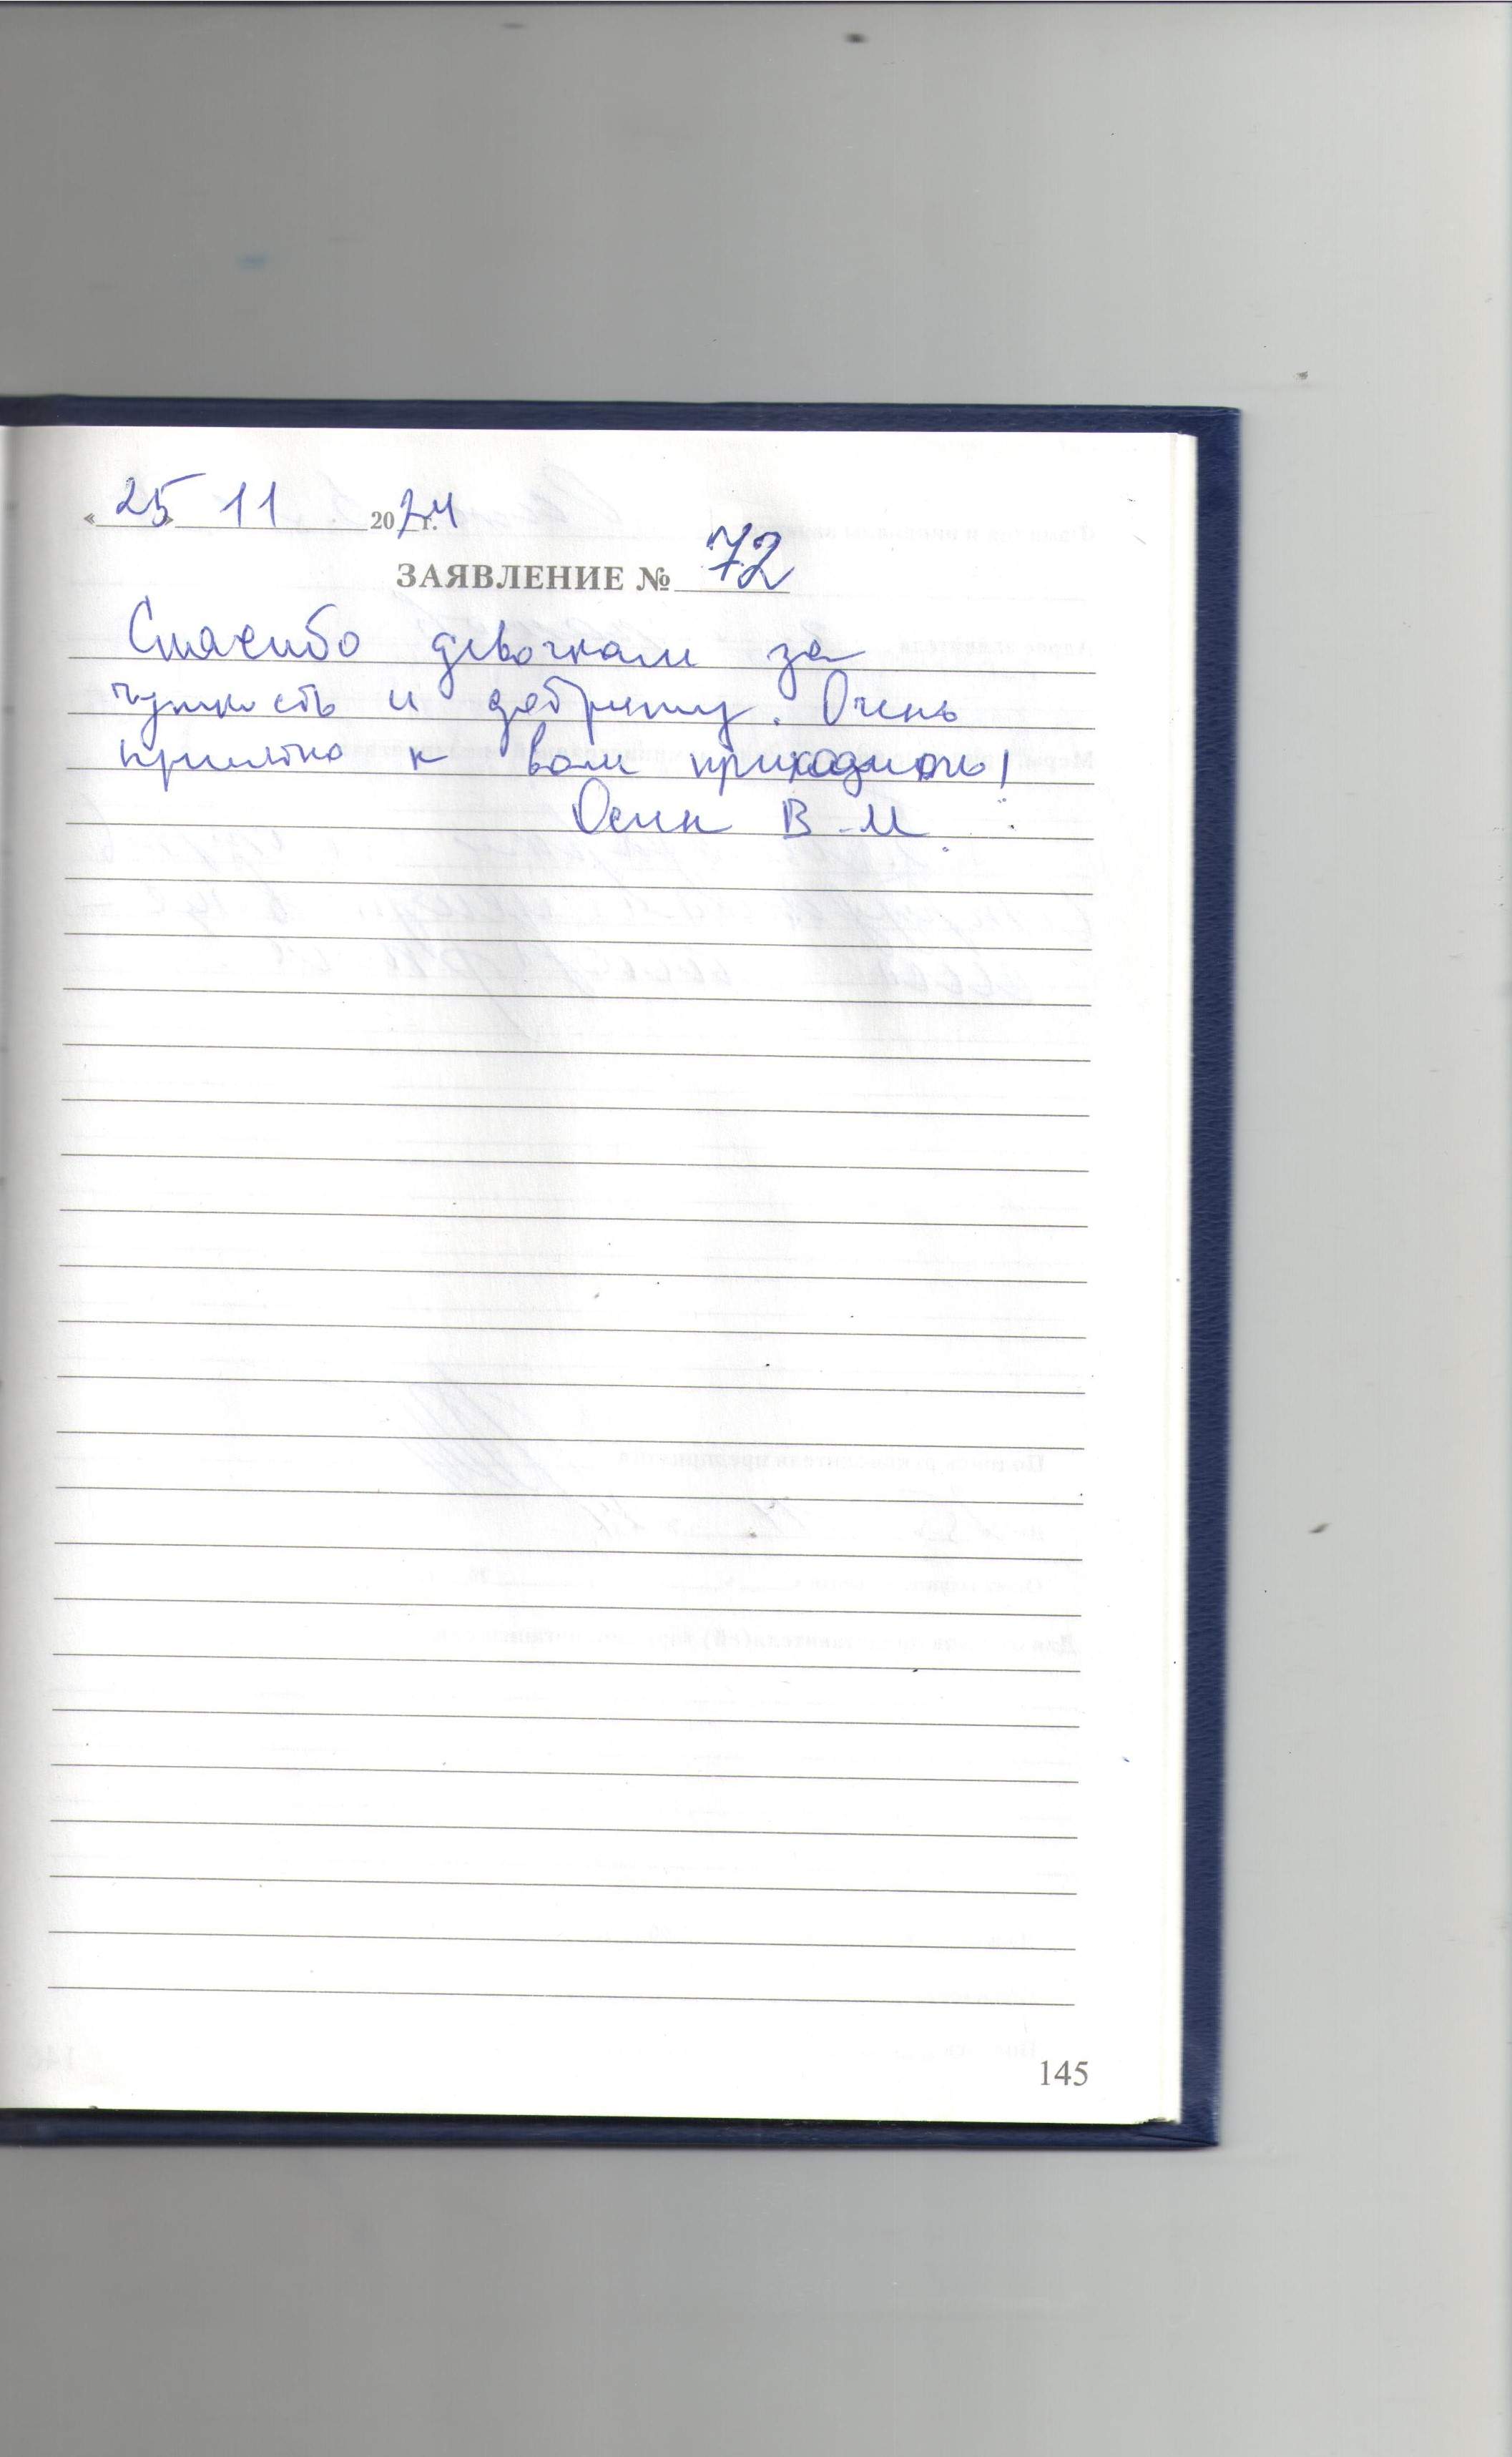 «25» 11 2024 г.
ЗАЯВЛЕНИЕ № 72
Спасибо девочкам за
чуткость и доброту. Очень
приятно к вам приходить!
Осин В.М.
145